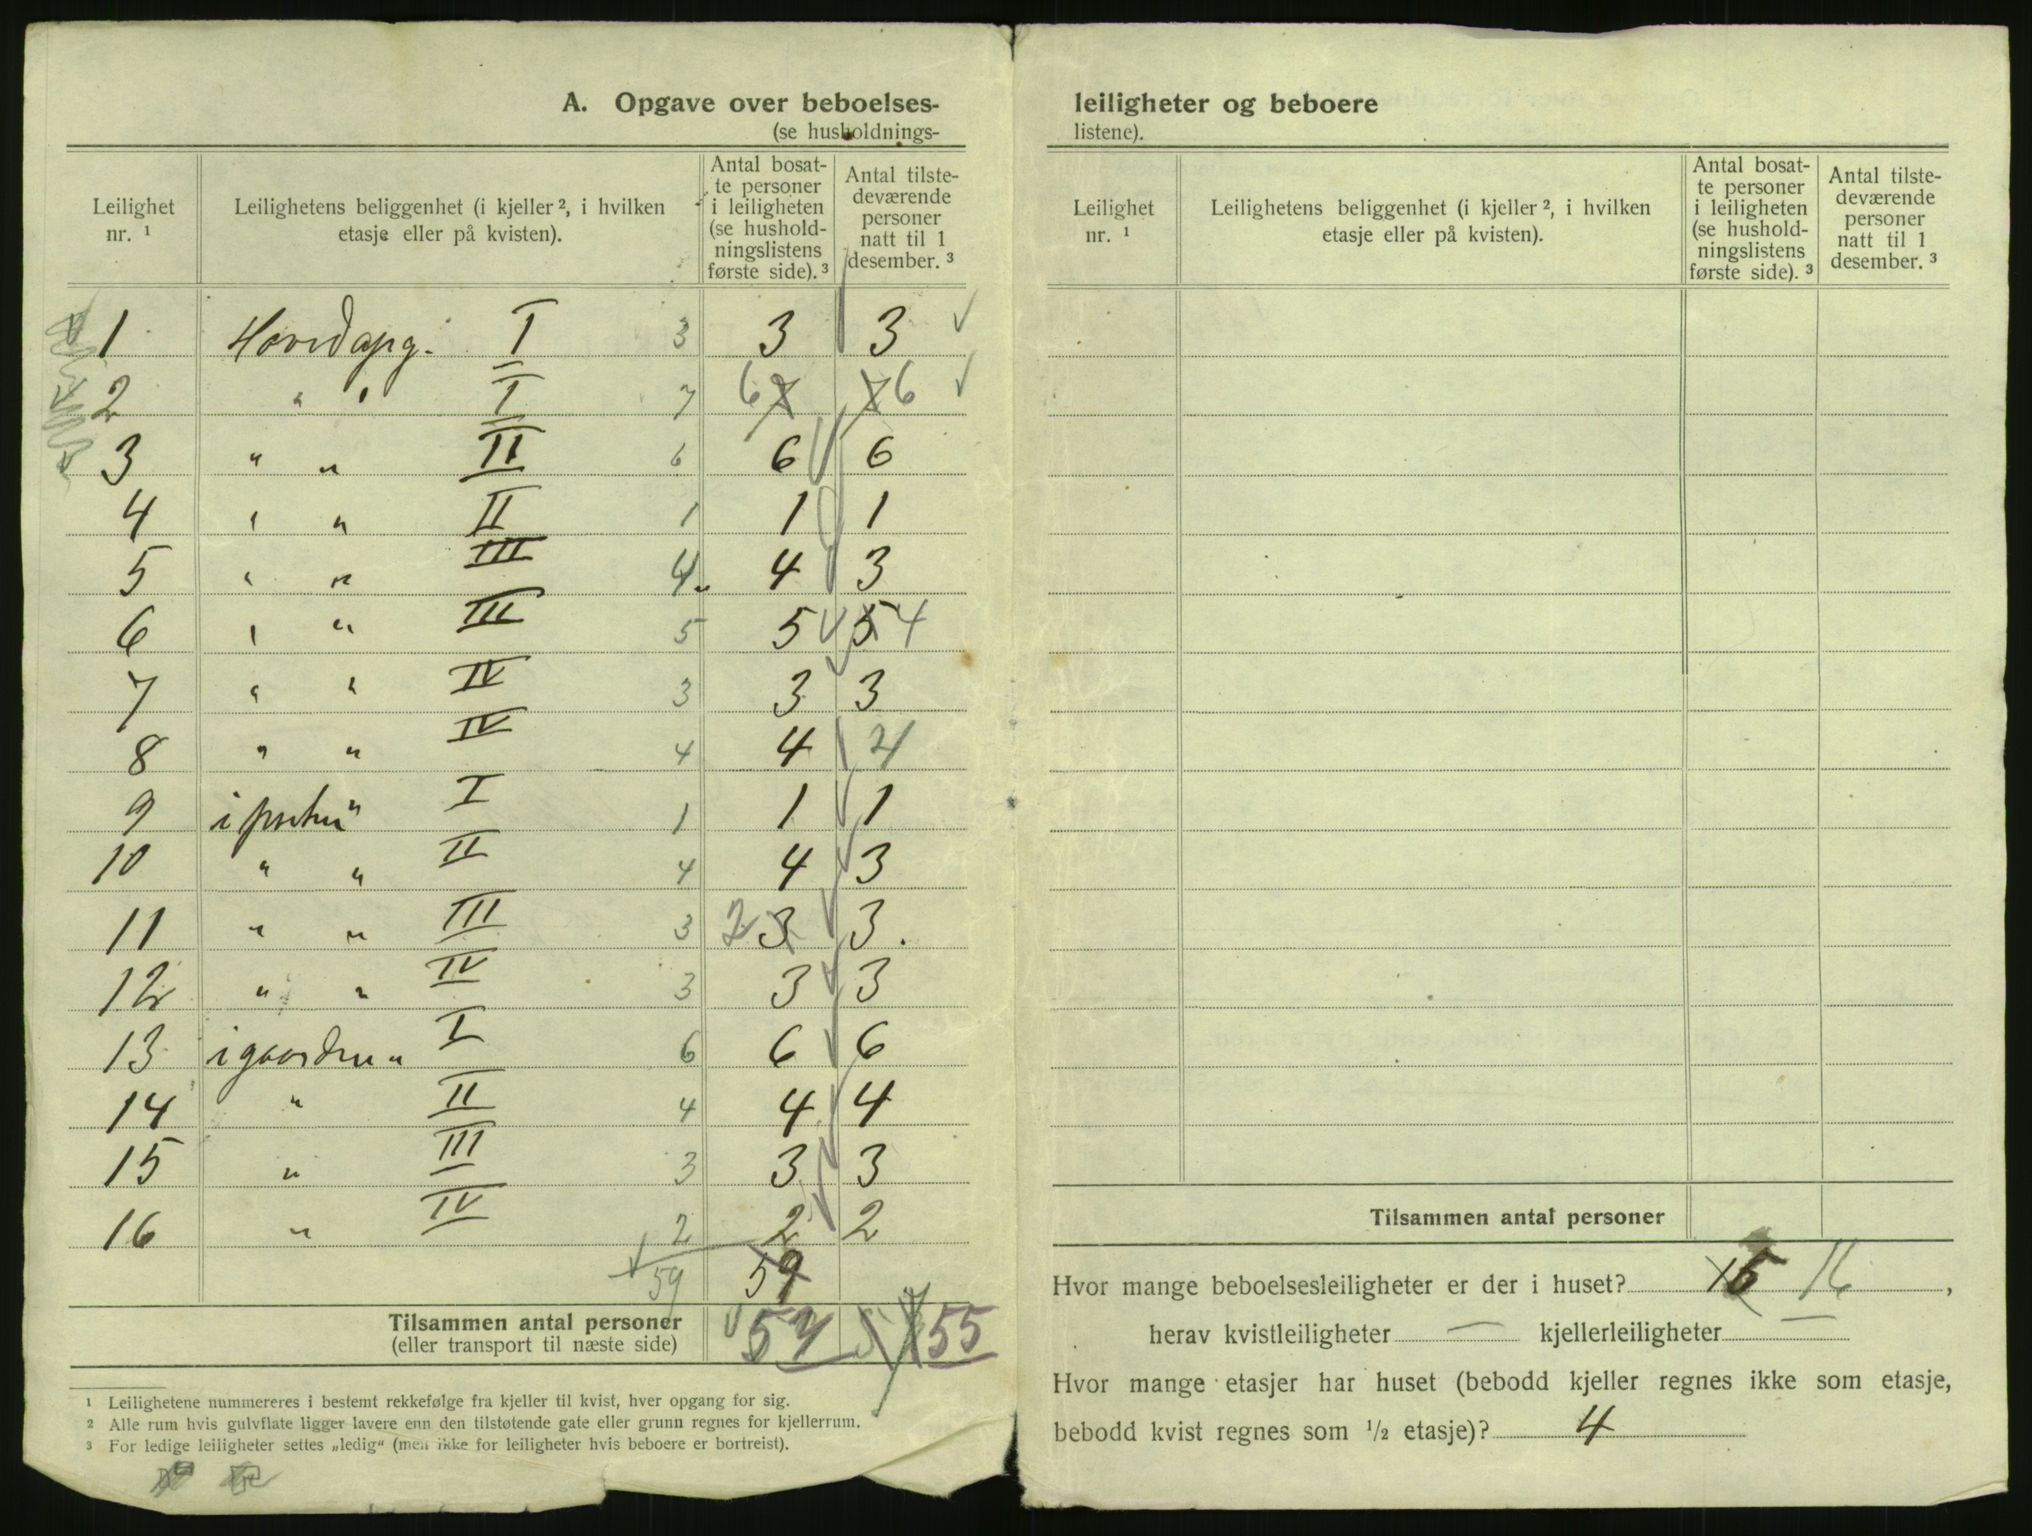 A. Opgave over beboelses-
(se husholdnings-
Leilighet nr. ¹
Leilighetens beliggenhet (i kjeller ², i hvilken etasje eller på kvisten).
Antal bosat-
te personer
i leiligheten
(se hushold-
ningslistens
første side). ³
Antal tilste-
deværende
personer
natt til 1
desember. ³
1 Hovedopg. I 3 3 3
2 " " I 7 6 7 7 6
3 " " II 6 6 6
4 " " II 1 1 1
5 " " III 4 4 3
6 " " III 5 5 5 4
7 " " IV 3 3 3
8 " " IV 4 4
9 I 1 1 1
10 " " II 4 4 3
11 " " III 3 2 3 3.
12 " " IV 3 3 3
13 i gaarden " I 6 6 6
14 " II 4 4 4
15 " III 3 3 3
16 " IV 2 2 2
59 59
Tilsammen antal personer 55
(eller transport til næste side)
¹ Leilighetene nummereres i bestemt rekkefølge fra kjeller til kvist, hver opgang for sig.
² Alle rum hvis gulvflate ligger lavere enn den tilstøtende gate eller grunn regnes for kjellerrum.
³ For ledige leiligheter settes „ledig" (men ikke for leiligheter hvis beboere er bortreist).
leiligheter og beboere
listene).
Leilighet nr. ¹
Leilighetens beliggenhet (i kjeller ², i hvilken etasje eller på kvisten).
Antal bosat-
te personer
i leiligheten
(se hushold-
ningslistens
første side). ³
Antal tilste-
deværende
personer
natt til 1
desember. ³
Tilsammen antal personer
Hvor mange beboelsesleiligheter er der i huset? 15 16,
herav kvistleiligheter — kjellerleiligheter —
Hvor mange etasjer har huset (bebodd kjeller regnes ikke som etasje,
bebodd kvist regnes som ½ etasje)? 4